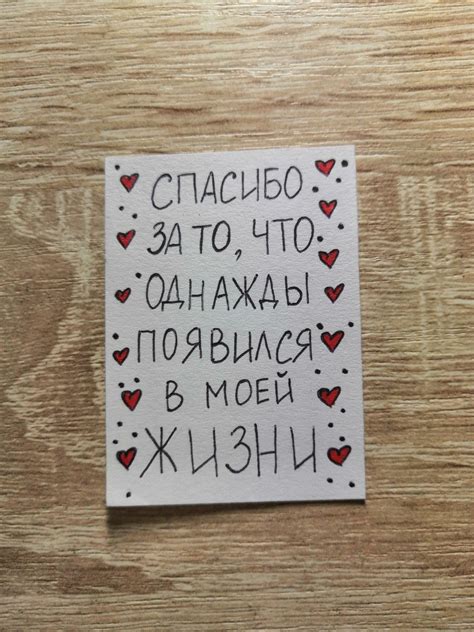 СПАСИБО
ЗА ТО, ЧТО
ОДНАЖДЫ
ПОЯВИЛСЯ
В МОЕЙ
ЖИЗНИ